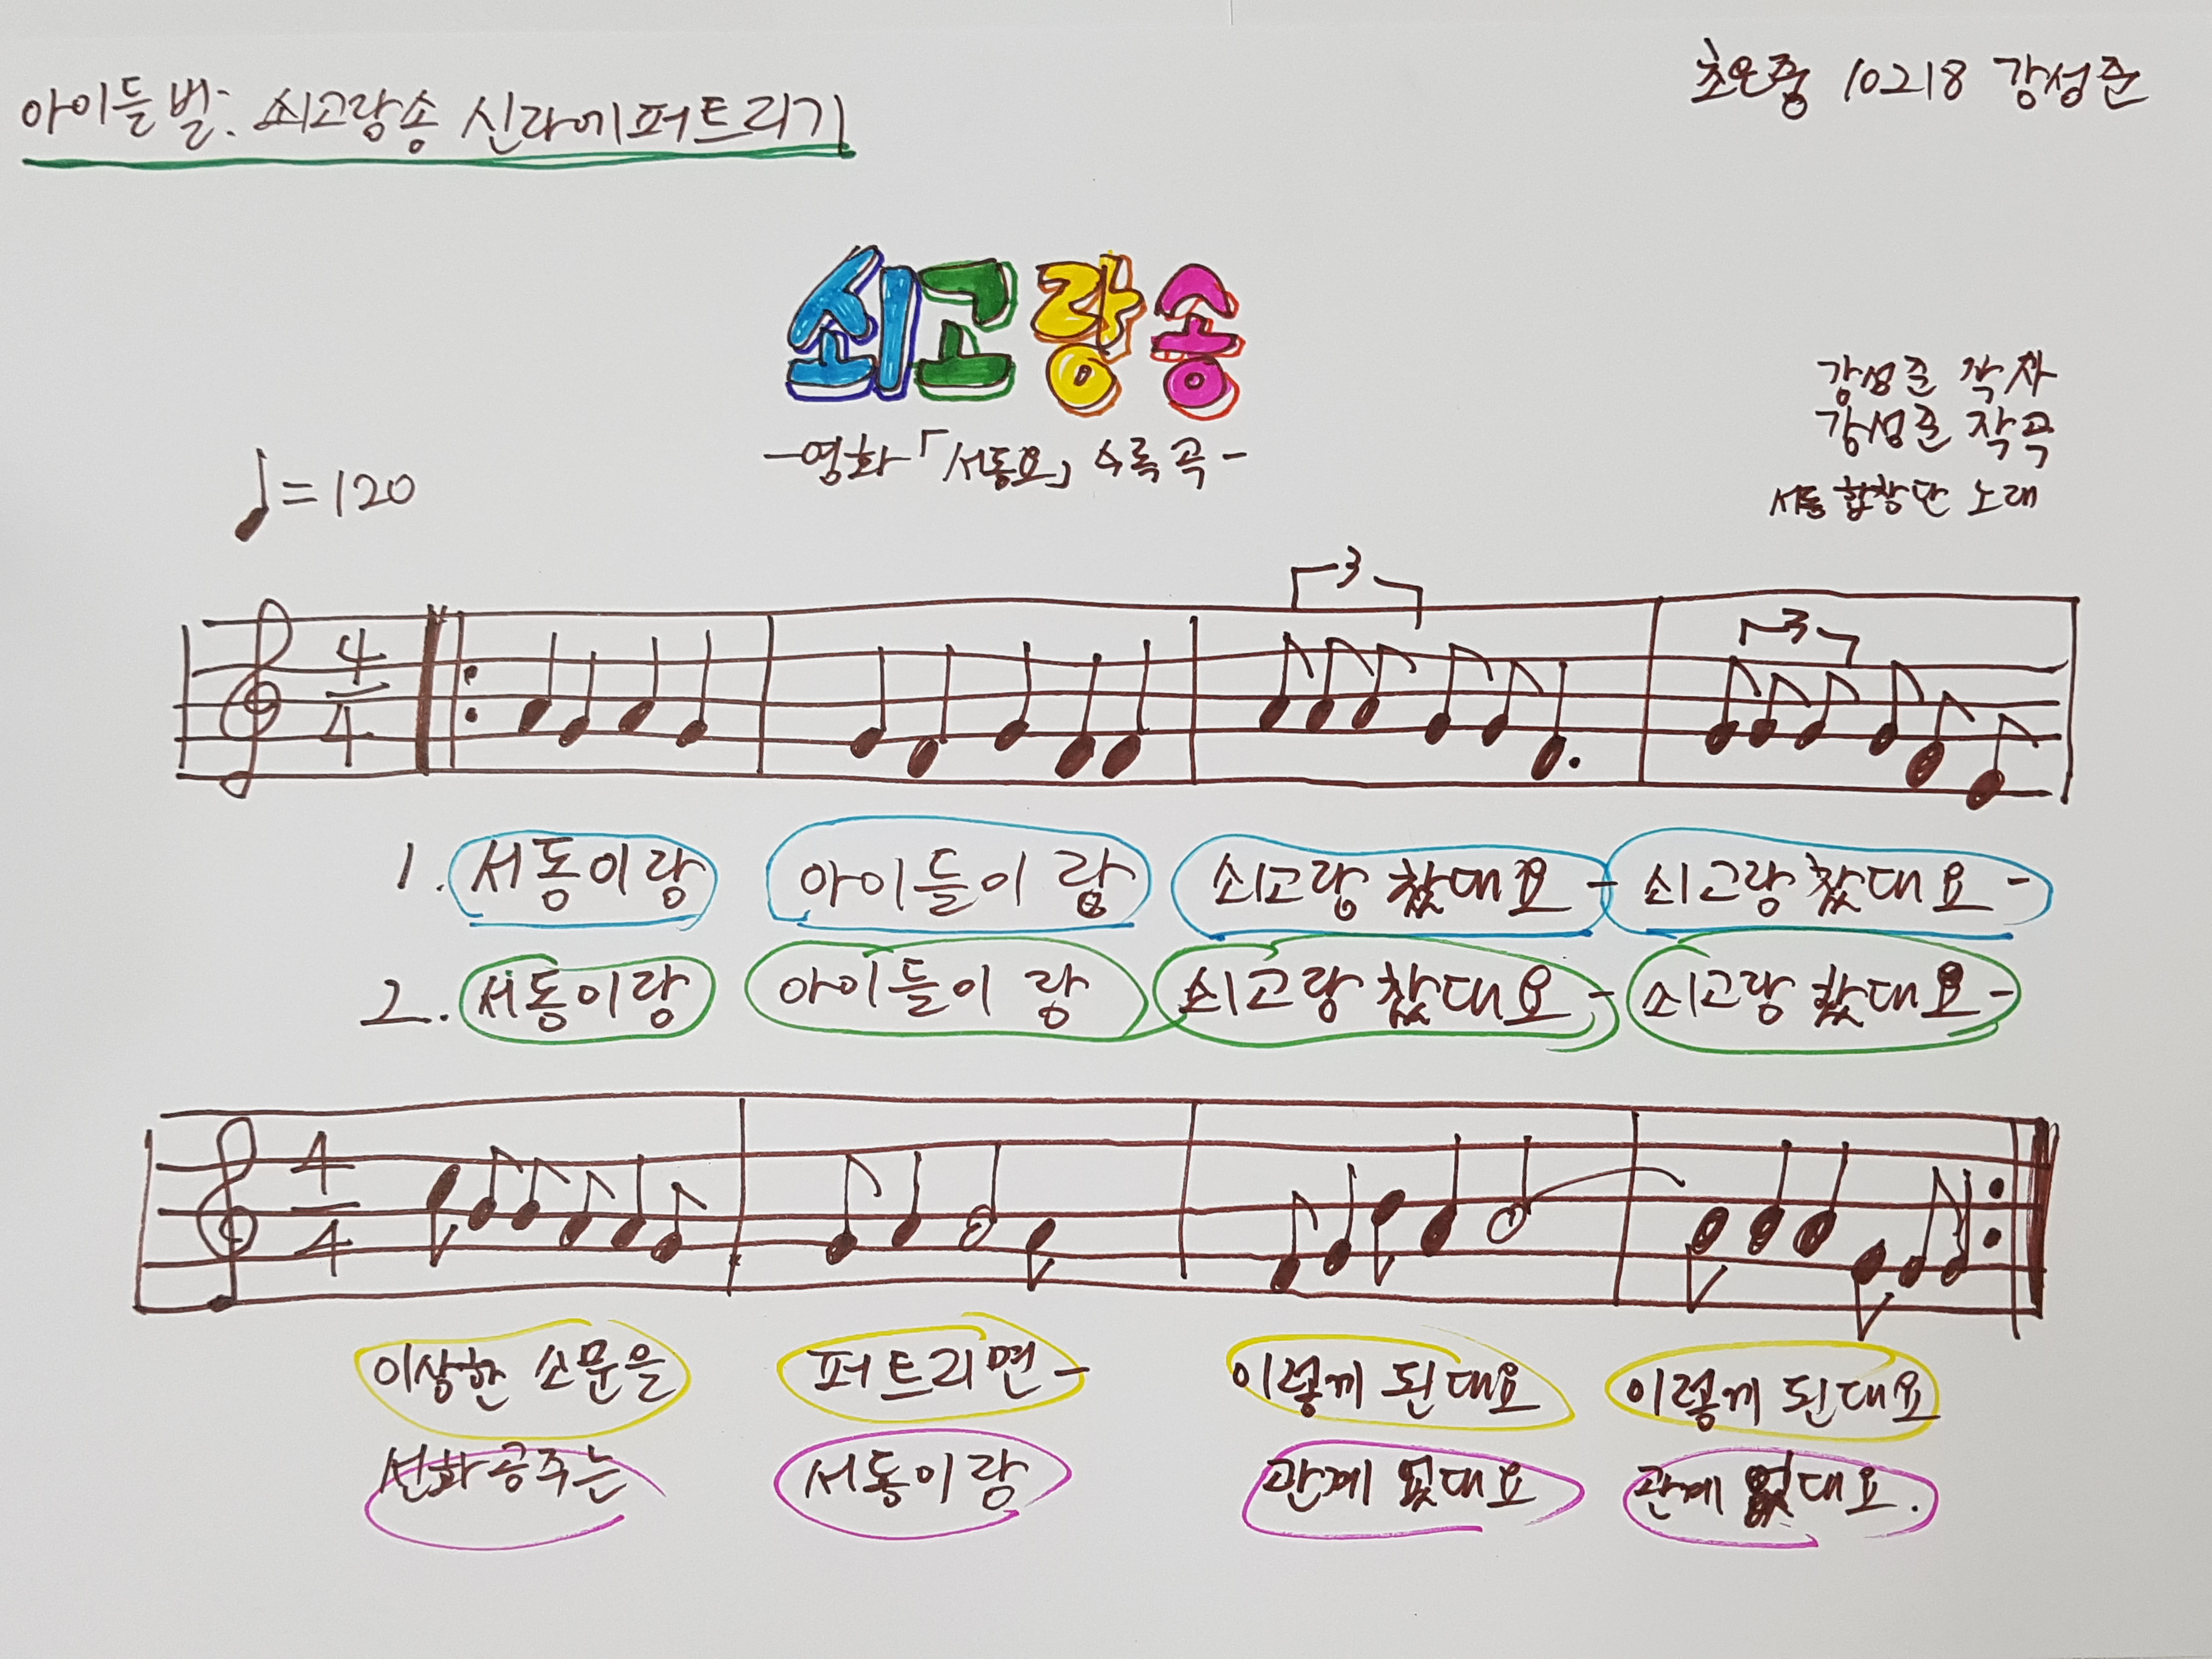 아이들 벌: 쇠고랑송 신라에 퍼트리기
초은중 10218 강성준
쇠고랑송
-영화「서동요」수록곡-
강성준 작사
강성준 작곡
서동 합창단 노래
♩=120
3
3
4
4
1. 서동이랑 아이들이 랑 쇠고랑 찼대요- 쇠고랑 찼대요-
2. 서동이랑 아이들이 랑 쇠고랑 찼대요- 쇠고랑 찼대요-
4
4
이상한 소문을 퍼트리면- 이렇게 된대요 이렇게 된대요
선화공주는 서동이랑 관계 없대요 관계 없대요.